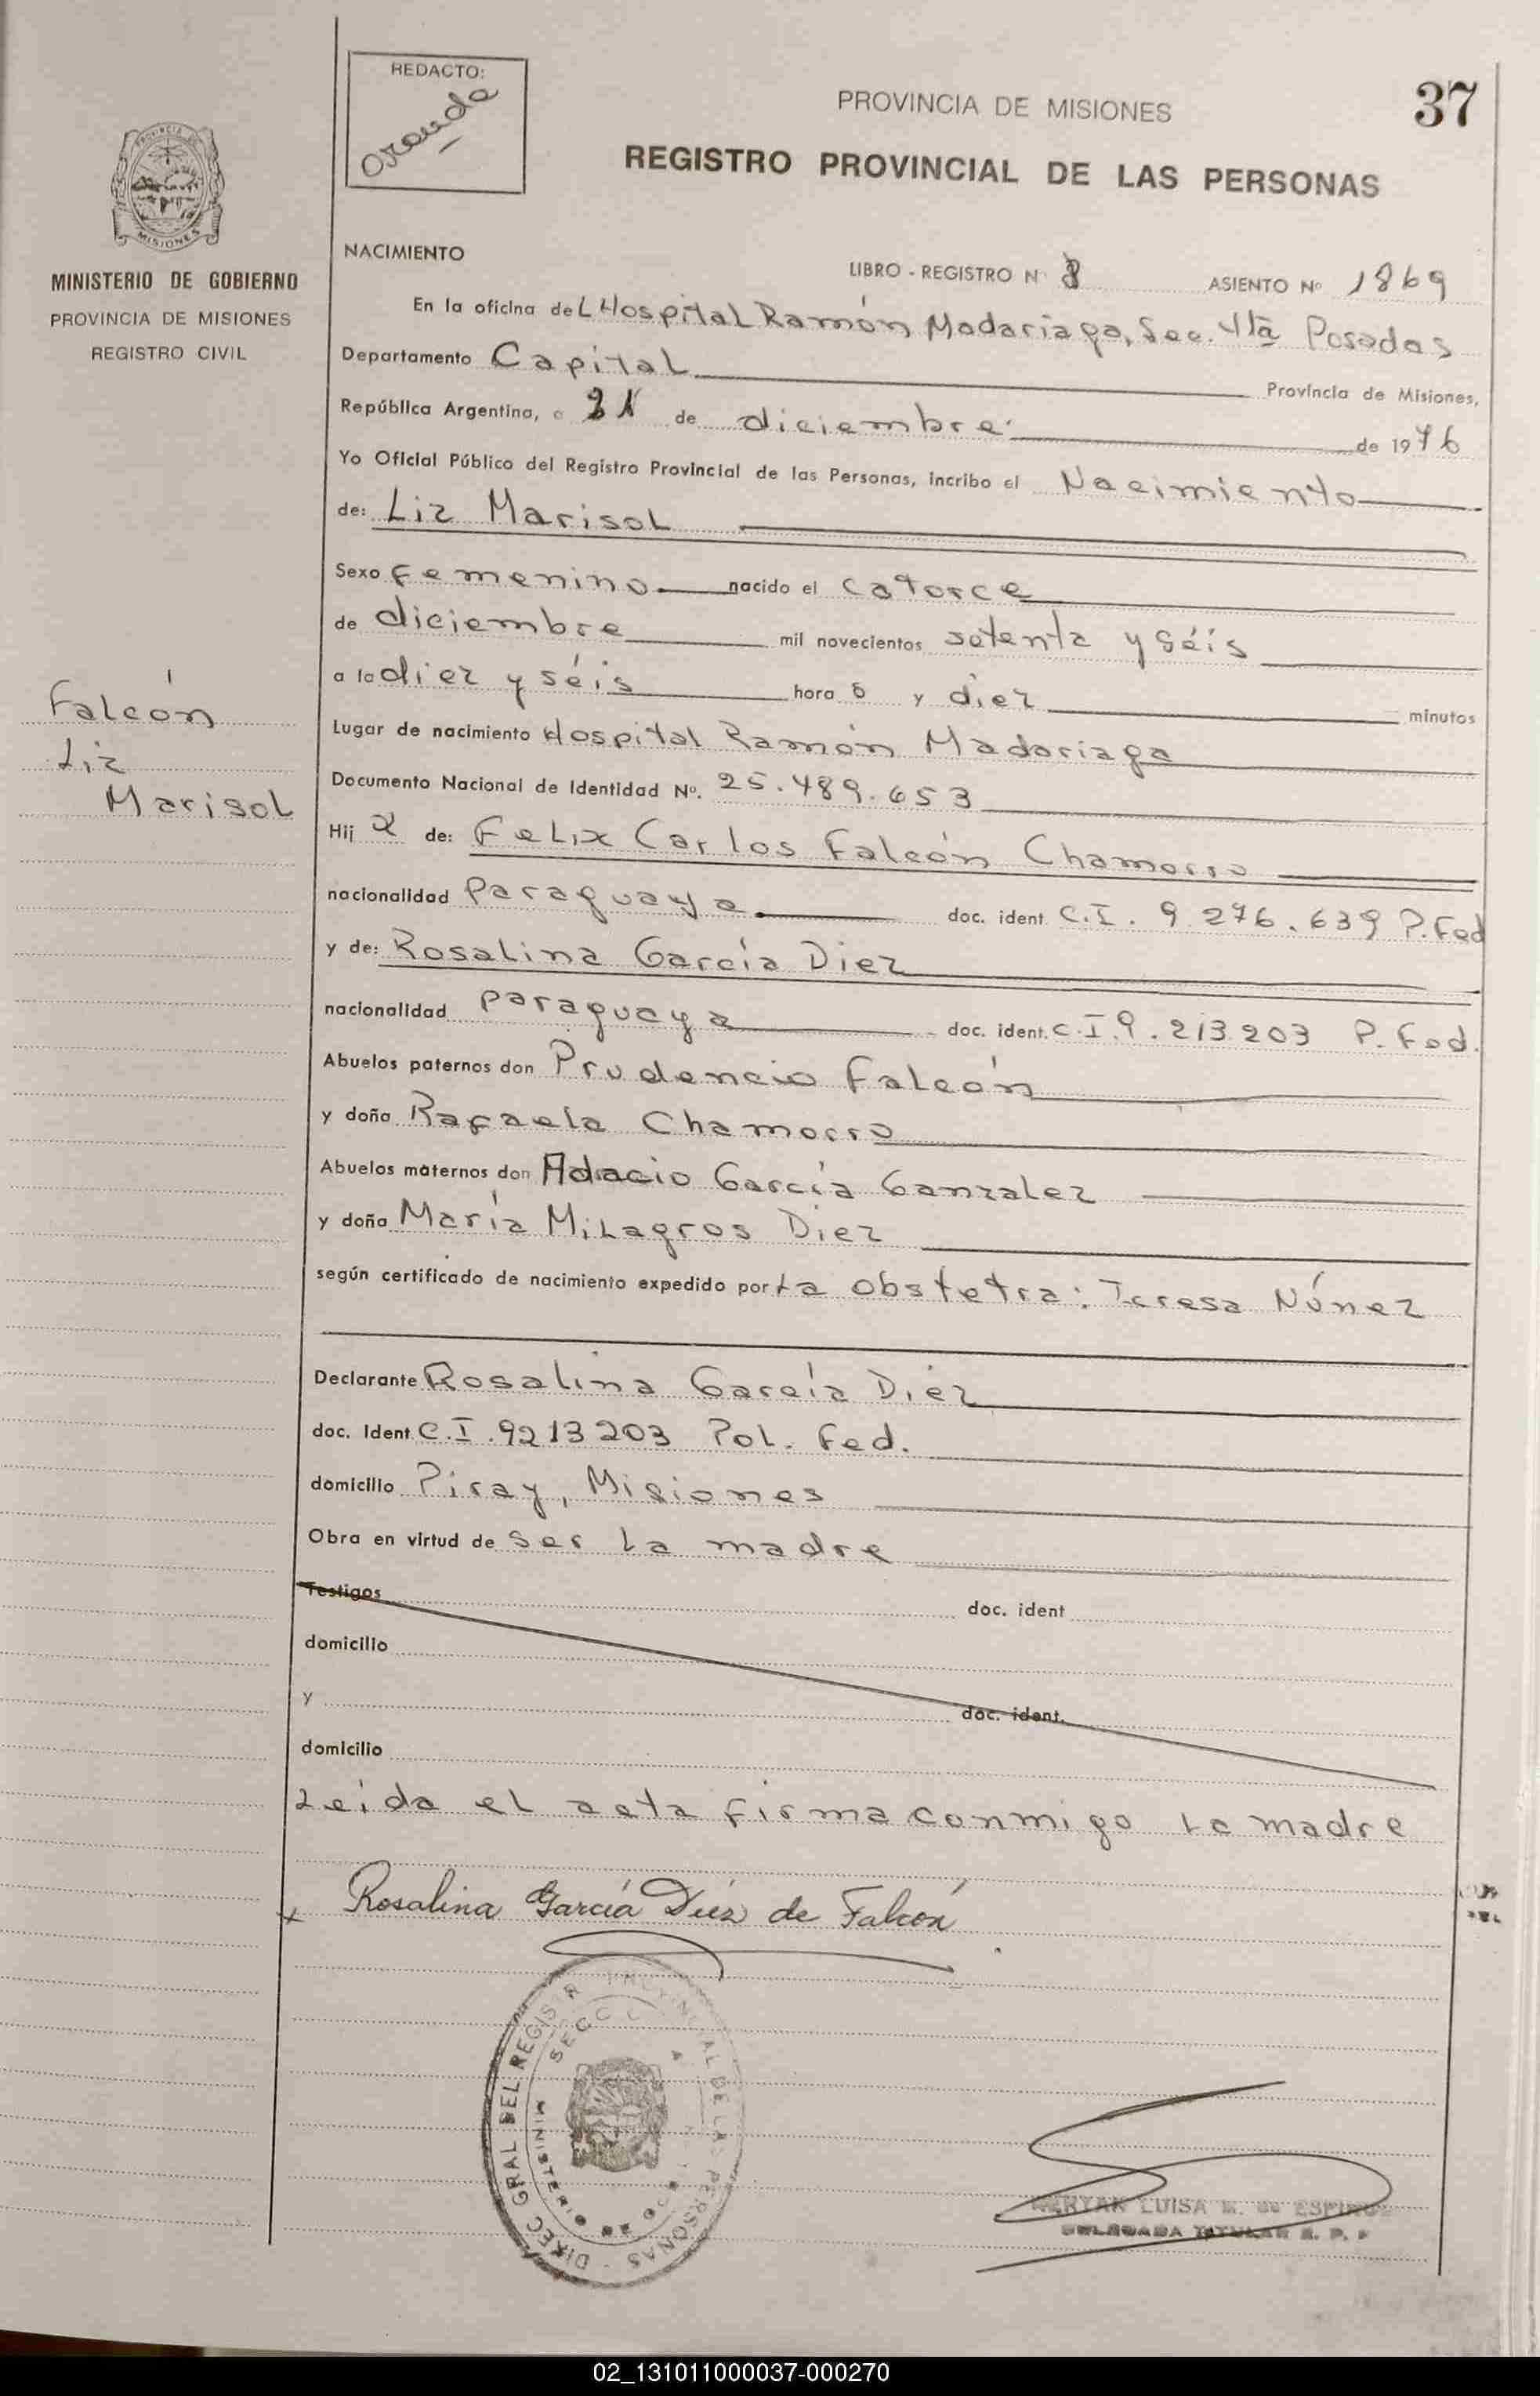 37
REDACTO:
Oranda
PROVINCIA DE MISIONES
REGISTRO PROVINCIAL DE LAS PERSONAS
MISIONES
MINISTERIO DE GOBIERNO
PROVINCIA DE MISIONES
REGISTRO CIVIL
NACIMIENTO
LIBRO - REGISTRO Nº 8 ASIENTO Nº 1869
En la oficina deL Hospital Ramón Madariaga, Sec. Posadas
Departamento Capital Provincia de Misiones,
República Argentina, a de diciembre de 1976
Yo Oficial Público del Registro Provincial de las Personas, incribo el Nacimiento
de: Liz Marisol
Sexo femenino nacido el catorce
de diciembre mil novecientos setenta y séis
a la diez y séis hora s y diez minutos
Lugar de nacimiento Hospital Ramón Madariaga
Documento Nacional de Identidad Nº. 25.489.653
Hij a de: Felix Carlos Falcón Chamorro
nacionalidad Paraguaya doc. ident. C.I. 9.276.639 P.Fed
y de: Rosalina García Diez
nacionalidad paraguaya doc. ident. C.I.9.213.203 P. Fed.
Abuelos paternos don Prudencio Falcón
y doña Rafaela Chamorro
Abuelos maternos don Adacio García Ganzalez
y doña María Milagros Diez
según certificado de nacimiento expedido por La obstetra: Teresa Núnez
Declarante Rosalina García Diez
doc. Ident C.I.9213203 Pol. Fed.
domicilio Piray, Misiones
Obra en virtud de ser la madre
Testigos doc. ident
domicilio
y doc. ident.
domicilio
Leída el acta firma conmigo la madre
Rosalina García Diéz de Falcón
Falcón
Liz
Marisol
DIREC GRAL DEL REGISTR PROVINCIAL DE LAS PERSONAS
MINISTERIO DE
LUISA M. de ESPINOZ
DELEGADA TITULAR R. P. P
02_131011000037-000270